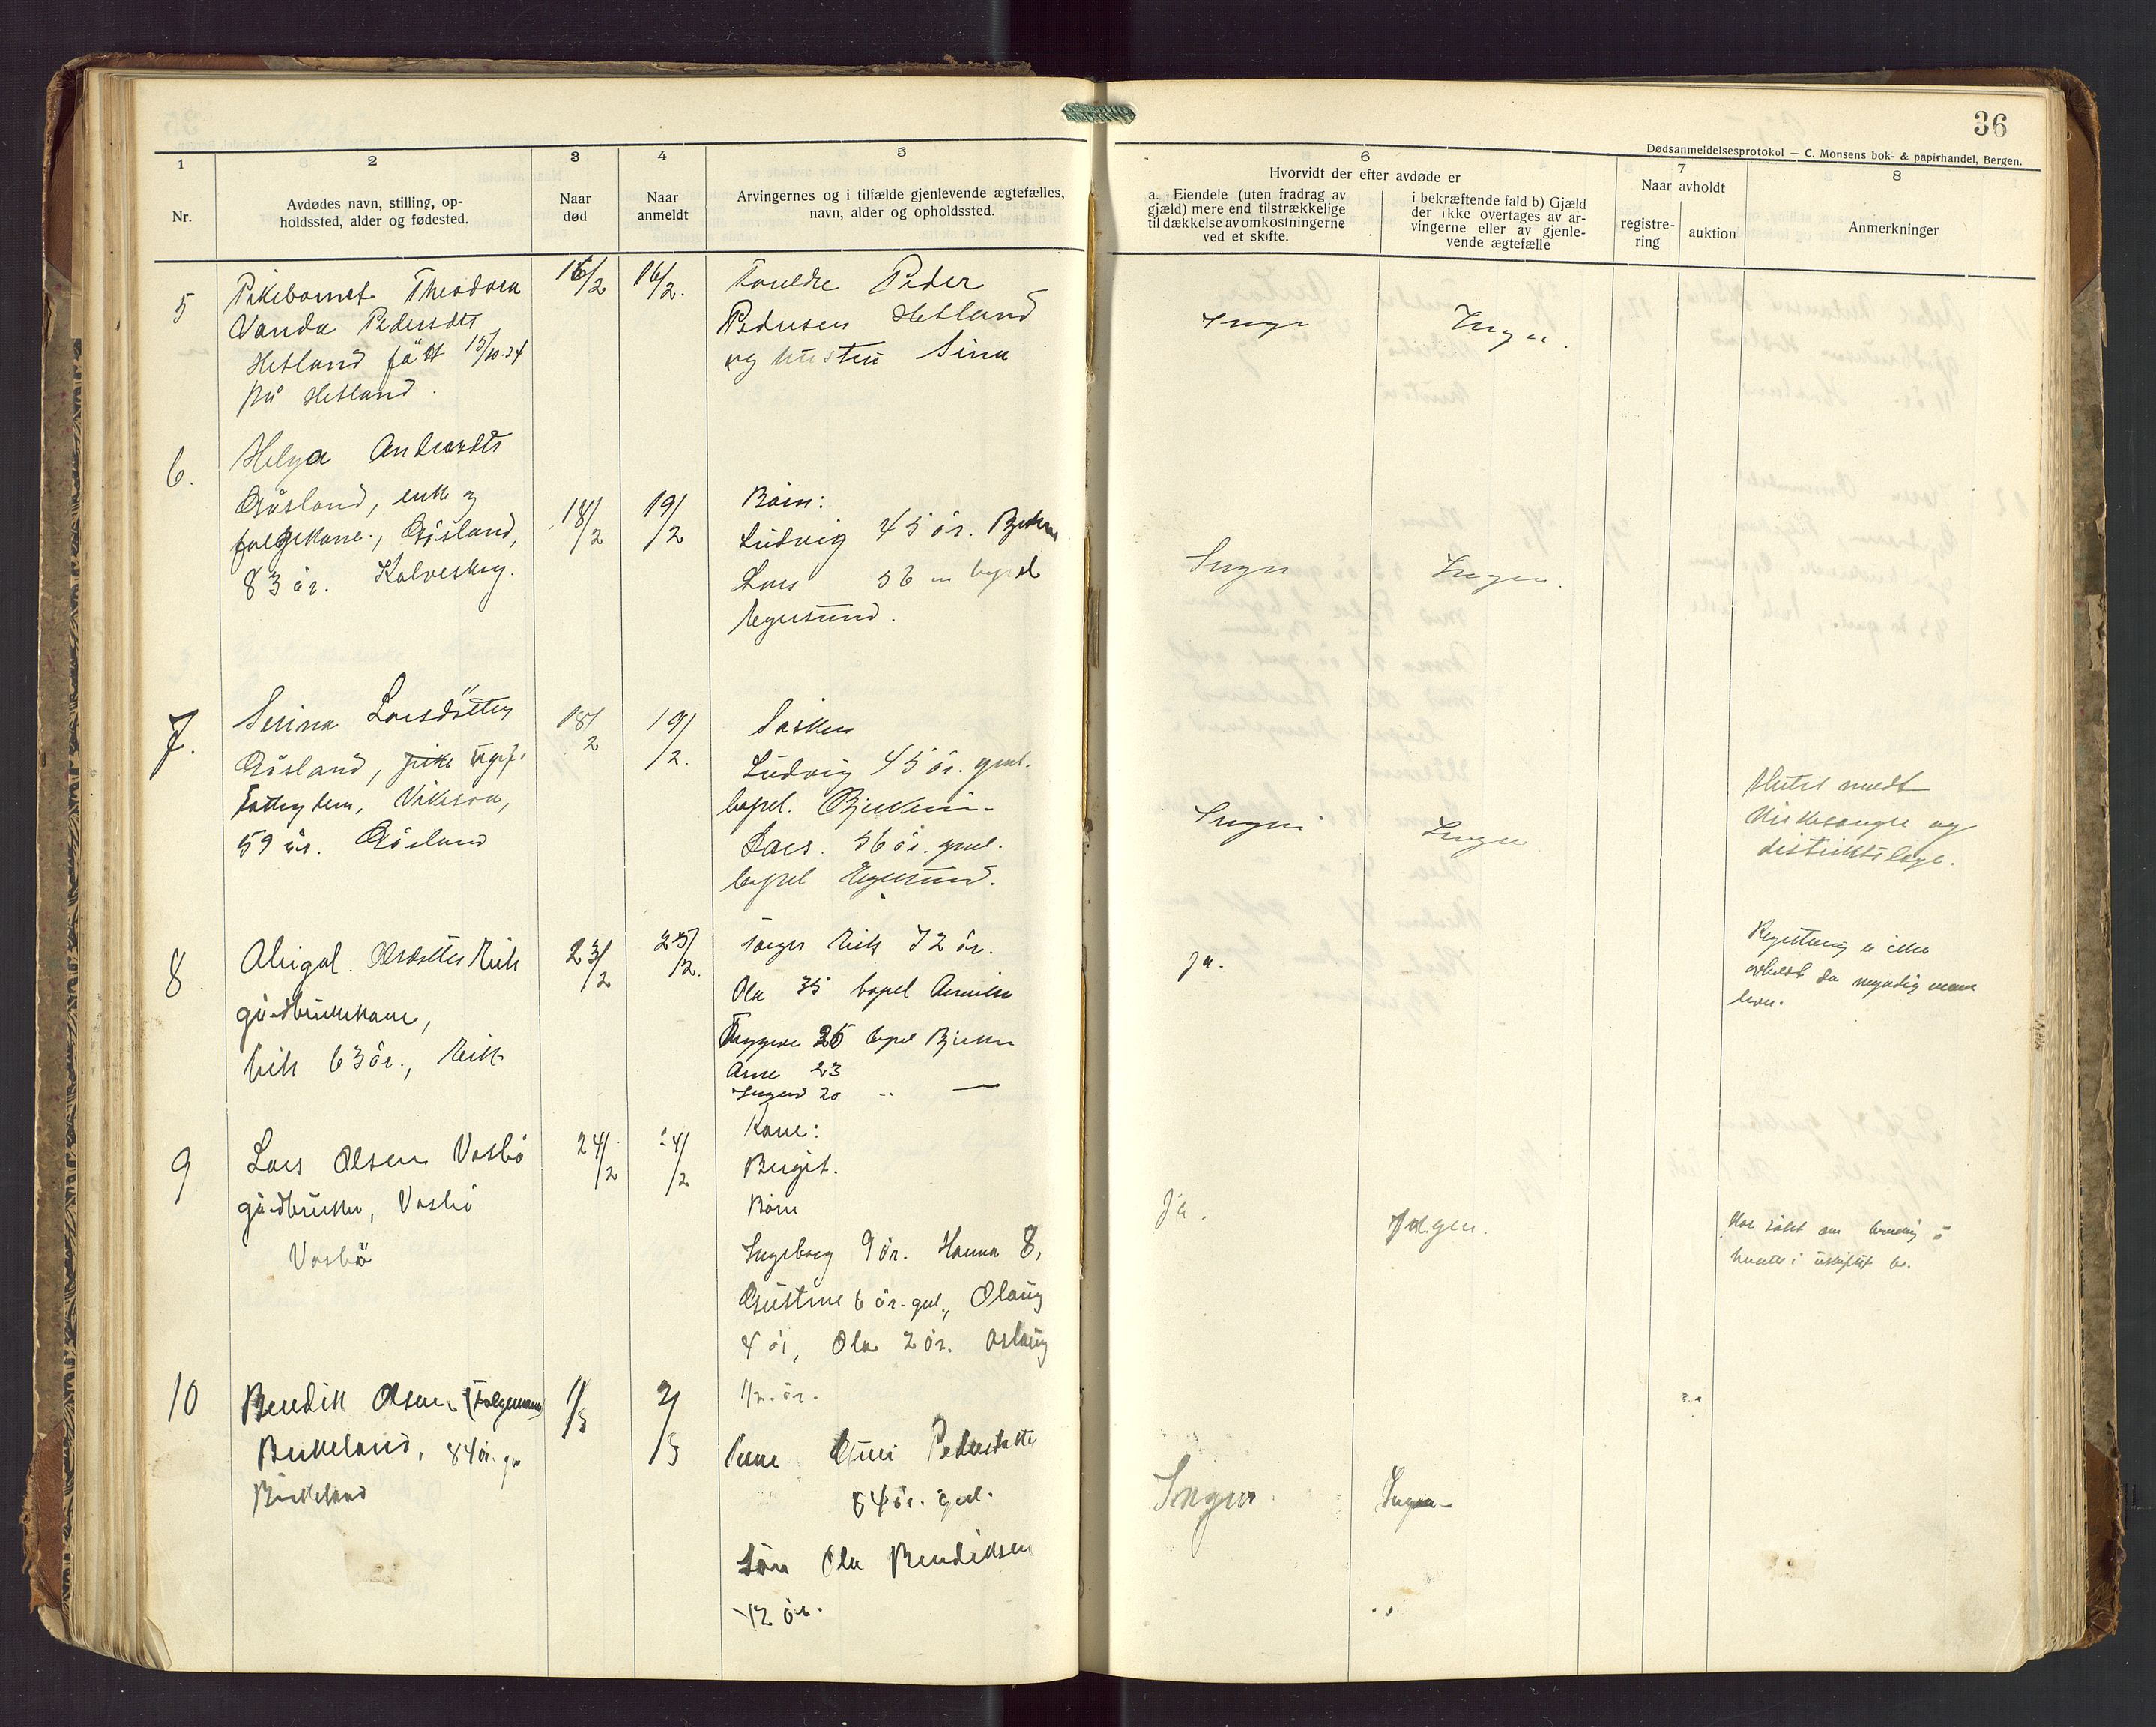 36
Dødsanmeldelsesprotokol — C. Monsens bok- & papirhandel, Bergen.
1
2
3
4
5
6
7
8
Nr.
Avdødes navn, stilling, op-
holdssted, alder og fødested.
Naar
død
Naar
anmeldt
Arvingernes og i tilfælde gjenlevende ægtefælles,
navn, alder og opholdssted.
Hvorvidt der efter avdøde er
a. Eiendele (uten fradrag av
gjæld) mere end tilstrækkelige
til dækkelse av omkostningerne
ved et skifte.
i bekræftende fald b) Gjæld
der ikke overtages av ar-
vingerne eller av gjenle-
vende ægtefælle
Naar avholdt
registre-
ring
auktion
Anmerkninger
5
Pikebarnet Theodora
Vanda Pedersdtr
Hetland født 15/10-24
på Hetland.
16/2
16/2.
Foreldre Peder
Pedersen Hetland
og hustru Sina
Ingen
Ingen.
6.
Helga Andersdtr
Gåsland, enke og
folgekone, Gåsland,
83 år.
18/2
19/2
Barn:
Ludvig 45 år.
Lars 56 " bopel
Egersund.
Ingen
Ingen.
7.
Serina Larsdötter
Gåsland, pike
59 år. Gåsland
18/2
19/2.
Søsken
Ludvig 45 år. gml.
bopel.
Lars. 56 år. gml.
bopel Egersund.
Ingen
Ingen
Attest medt
distriktslege.
8
Abigal. Olsdatter Eik
gårdbrukerkone,
Eik 63 år., Eik
23/2
25/2.
Eik 72 år.
Ola 35 bopel
Tryggve 25 bopel
Arne 23
20 " —
Ja.
Registrering er ikke
avholdt da myndig
9
Lars Olsen Vasbö
gårdbruker, Vasbö
Vasbö
24/2
24/2
Kone:
Birgit.
Barn
Ingeborg 9 år. Hanna 8,
Gustine 6 år. gml., Olaug
4 år, Ola 2 år. Aslaug
1/2 år.
Ja.
Ingen.
Har søkt om
uskiftet bo.
10
Bendik Olsen (Folgemann)
Birkeland, 84 år. gml
Birkeland
1/3
2/3
Pedersdatter
84 år. gml.
Sön Ola Bendiksen
42 år.
Ingen
Ingen